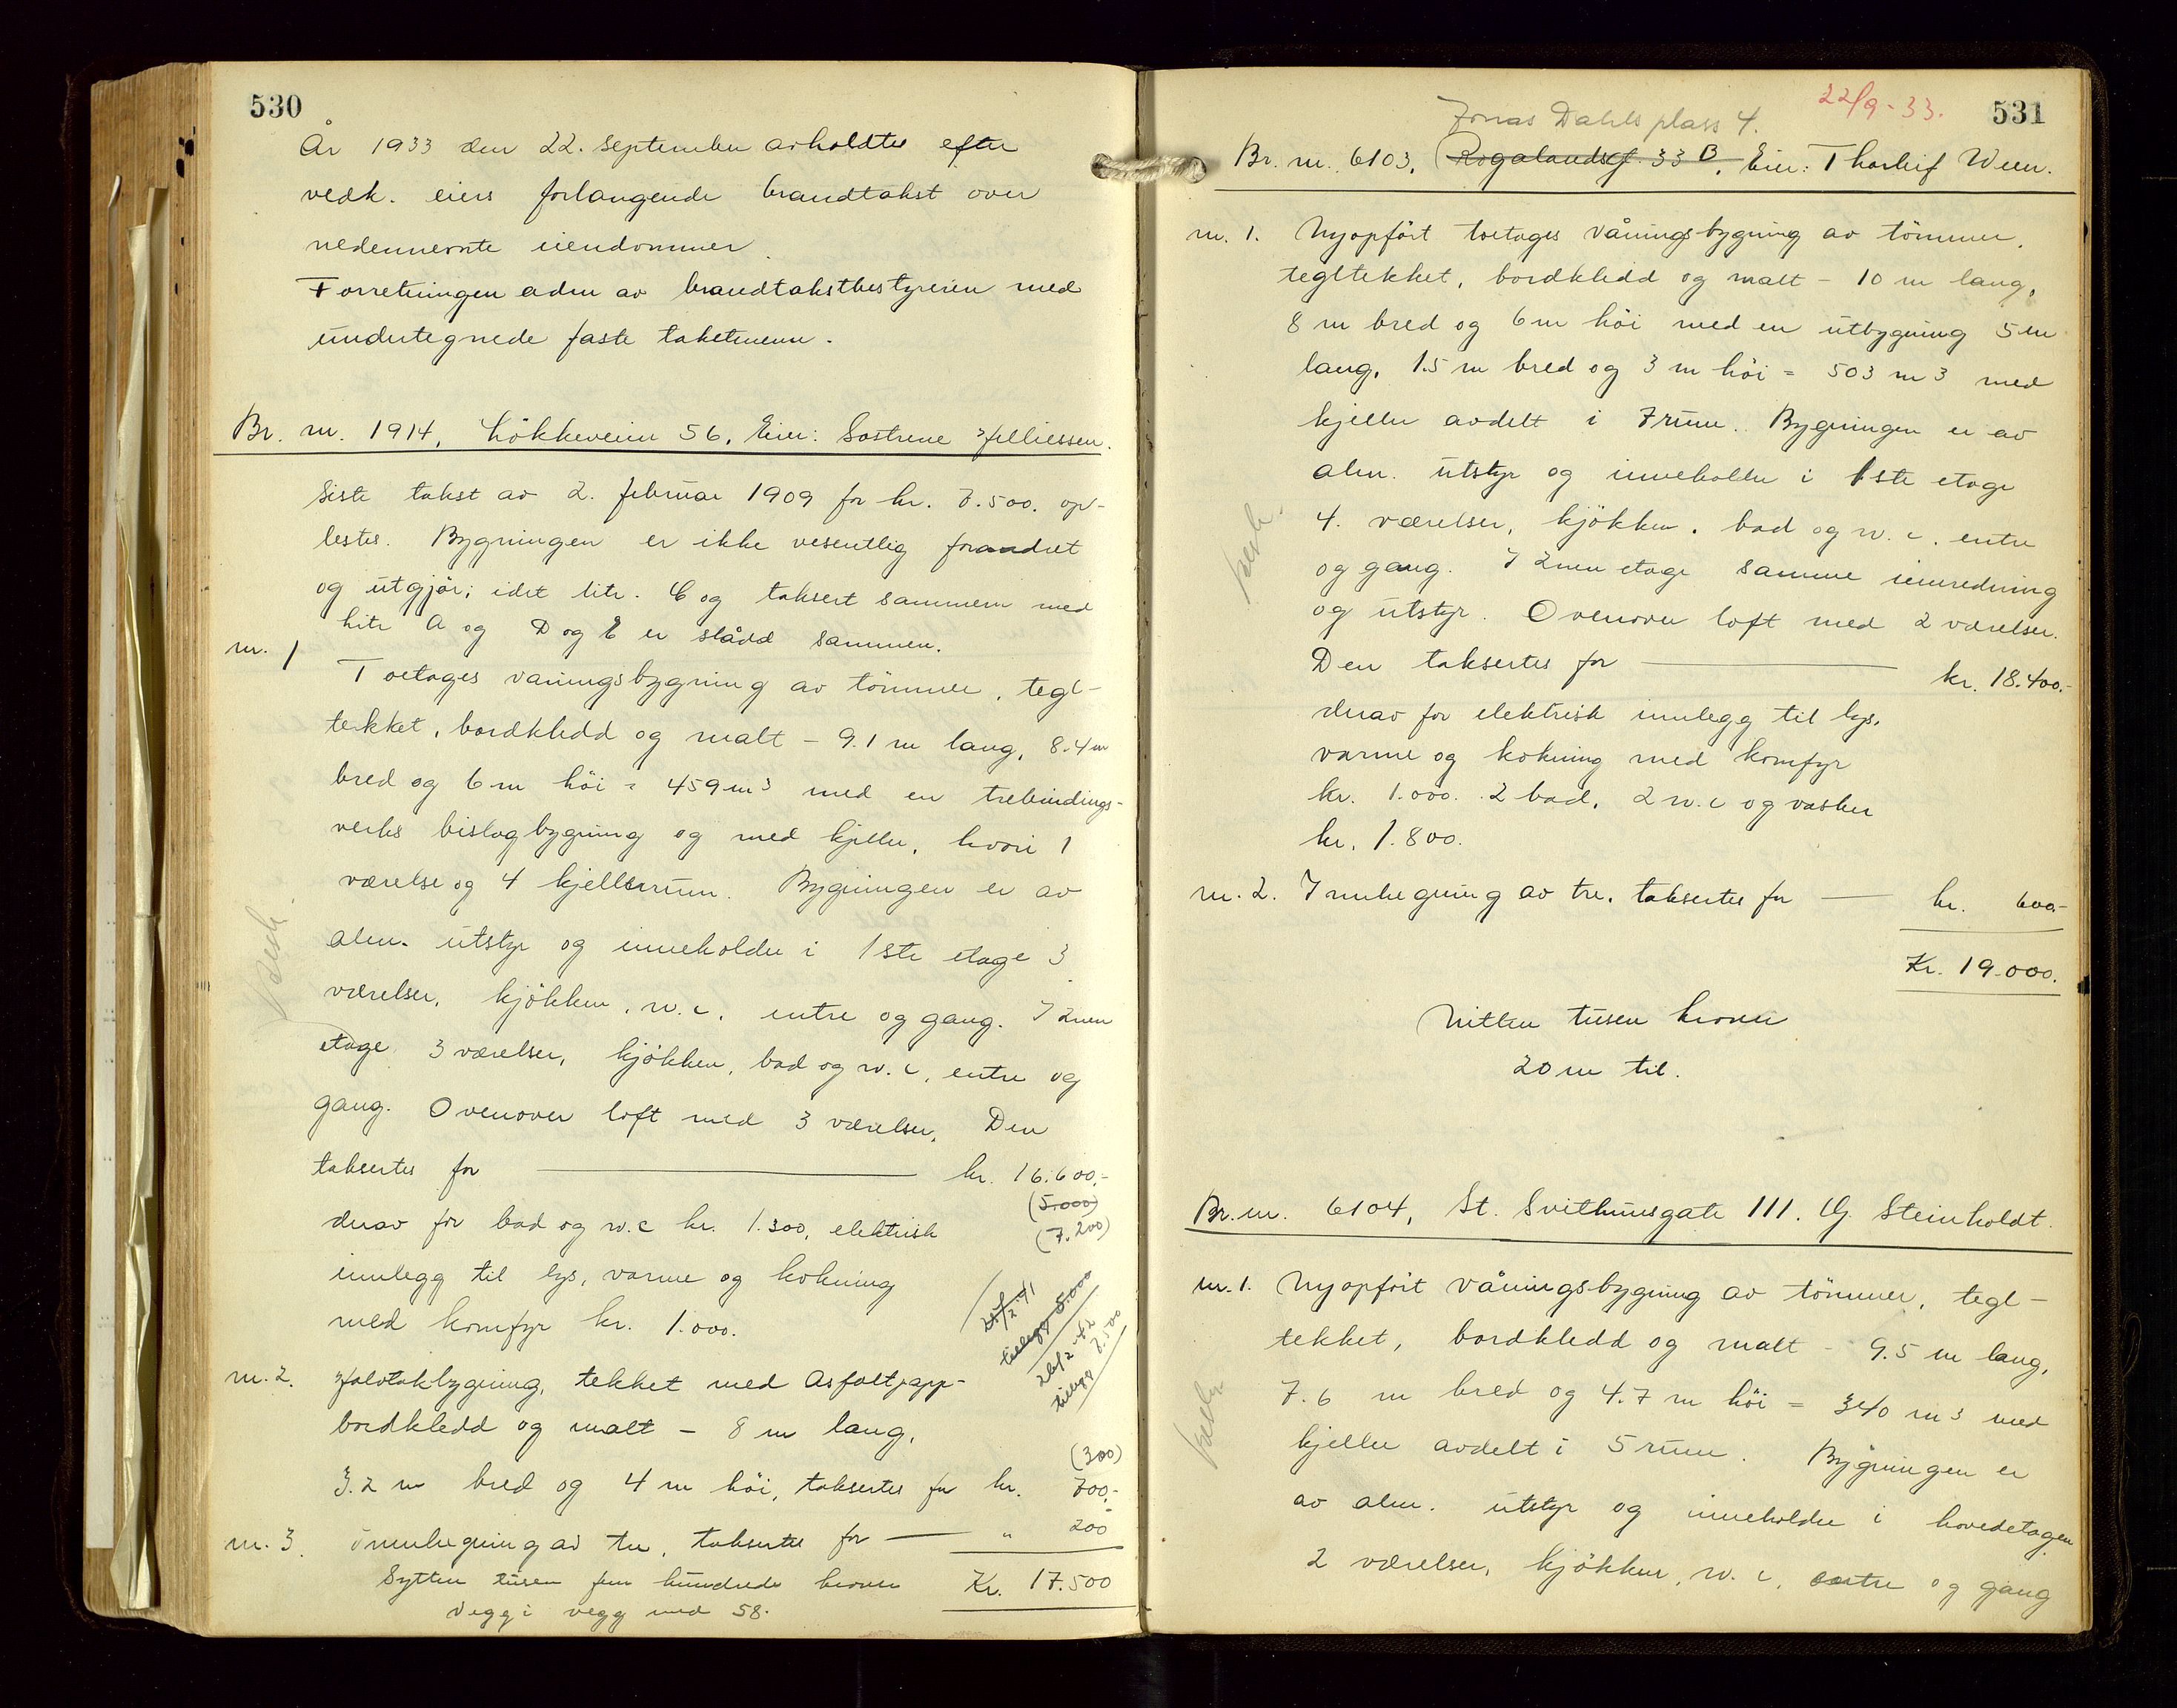 530
År 1933 den 22. September avholdtes efter
vedk. eiers forlangende brandtakst over
nedennevnte eiendommer.
Forretningen adm av brandtakstbestyreren med
undertegnede faste takstmenn.
Br. nr. 1914, Løkkeveien 56, Eier: Søstrene
Siste takst av 2. februar 1909 for kr. 7.500. op-
lestes. Bygningen er ikke vesentlig forandret
og utgjør; idet litr. C og taksert sammen med
litr A og D og E er slådd sammen.
nr. 1
Toetages våningsbygning av tømmer, tegl-
tekket, bordkledd og malt - 9.1 m lang, 8.4 m
bred og 6 m høi = 459 m3 med en trebindings-
verks bislagbygning og med kjeller, hvori 1
værelse og 4 kjellerrum. Bygningen er av
alm. utstyr og inneholder i 1ste etage 3
værelser, kjøkken, w.c, entre og gang. I 2nen
etage 3 værelser, kjøkken, bad og w.c, entre og
gang. Ovenover loft med 3 værelser. Den
taksertes for kr. 16.600.-
(5.000)
derav for bad og w.c kr. 1.300, elektrisk (7.200)
innlegg til lys, varme og kokning
med komfyr kr. 1.000.
/2 41
tillegg 5.000
26/2 42
tillegg 7.500
nr. 2. Halvtakbygning, tekket med Asfaltpapp-
bordkledd og malt - 8 m lang,
(300)
3.2 m bred og 4 m høi, taksertes for kr. 700.-
nr. 3. Innhegning av tre, taksertes for " 200
Sytten tusen fem hundrede kroner Kr. 17.500
Vegg i vegg med 58.
22/9-33.
531
Jonas Dahls plass 4.
Br. nr. 6103, Rogalandsg. 33 B, Eier: Thorleif Ween.
nr. 1. Nyopført toetages våningsbygning av tømmer,
tegltekket, bordkledd og malt - 10 m lang,
8 m bred og 6 m høi med en utbygning 5 m
lang, 1.5 m bred og 3 m høi = 503 m3 med
kjeller avdelt i 7 rum. Bygningen er av
alm. utstyr og inneholder i 1ste etage
4. værelser, kjøkken, bad og w.c, entre
og gang. I 2nen etage samme innredning
og utstyr. Ovenover loft med 2 værelser.
Den taksertes for kr. 18.400.-
derav for elektrisk innlegg til lys,
varme og kokning med komfyr
kr. 1.000. 2 bad, 2 w.c og vasker
kr. 1.800.
nr. 2. Innhegning av tre, taksertes for kr. 600.-
Kr. 19.000.
Nitten tusen kroner
20 m til.
Br. nr. 6104, St. Svithunsgate 111. G. Steinholdt.
nr. 1. Nyopført våningsbygning av tømmer, tegl-
tekket, bordkledd og malt - 9.5 m lang,
7.6 m bred og 4.7 m høi = 340 m3 med
kjeller avdelt i 5 rum. Bygningen er
av alm. utstyr og inneholder i hovedetagen
2 værelser, kjøkken, w.c, entre og gang